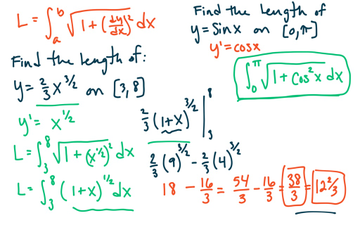 L = ∫ₐᵇ √(1 + (dy/dx)²) dx
Find the length of:
y = 2/3 x^(3/2) on [3, 8]
y' = x^(1/2)
L = ∫₃⁸ √(1 + (x^(1/2))²) dx
L = ∫₃⁸ (1 + x)^(1/2) dx
2/3 (1 + x)^(3/2) |₃⁸
2/3 (9)^(3/2) - 2/3 (4)^(3/2)
18 - 16/3 = 54/3 - 16/3 = 38/3 = 12 2/3
Find the length of
y = sin x on [0, π]
y' = cos x
∫₀^π √(1 + cos² x) dx